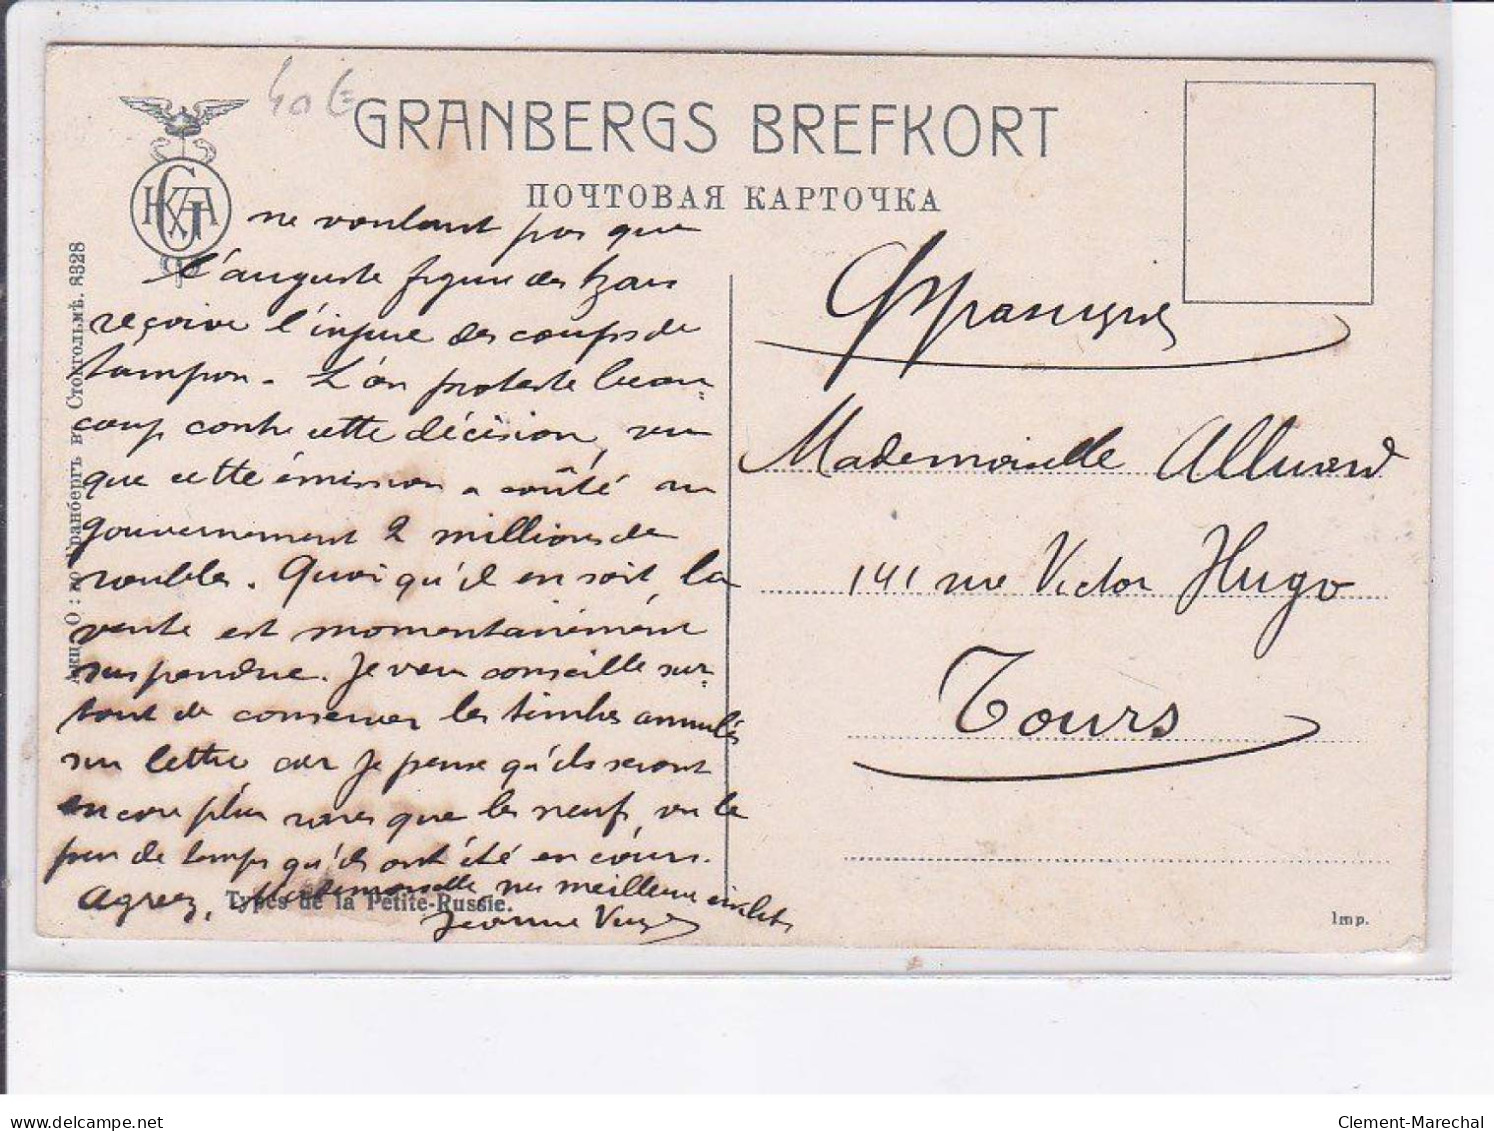 40 €
GRANBERGS BREFKORT
ПОЧТОВАЯ КАРТОЧКА
ne voulant pas que
l'auguste figure des tzars
reçoive l'injure des coups de
tampon. L'on proteste beau=
coup contre cette décision, vu
que cette émission a coûté au
gouvernement 2 millions de
roubles. Quoi qu'il en soit la
vente est momentanément
suspendue. Je vous conseille sur=
tout de conserver les timbres annulés
sur lettre car je pense qu'ils seront
encore plus rares que les neufs, vu le
peu de temps qu'ils ont été en cours.
Agréez, Mademoiselle, nos meilleures
Jeanne
Types de la Petite-Russie.
Акц. О: во Гранбергъ въ Стокгольмѣ. 8328
Mademoiselle Alluard
141 rue Victor Hugo
Tours
Imp.
delcampe.net
Clement-Marechal